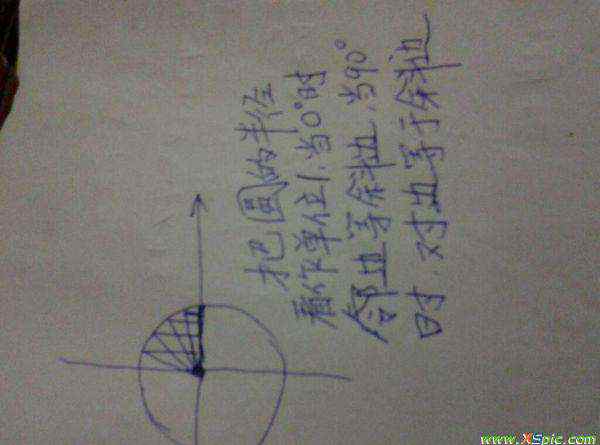 把圆的半径
看作单位1.当0°时
邻边等斜边.当90°
时.对边等于斜边
www.XSpic.com